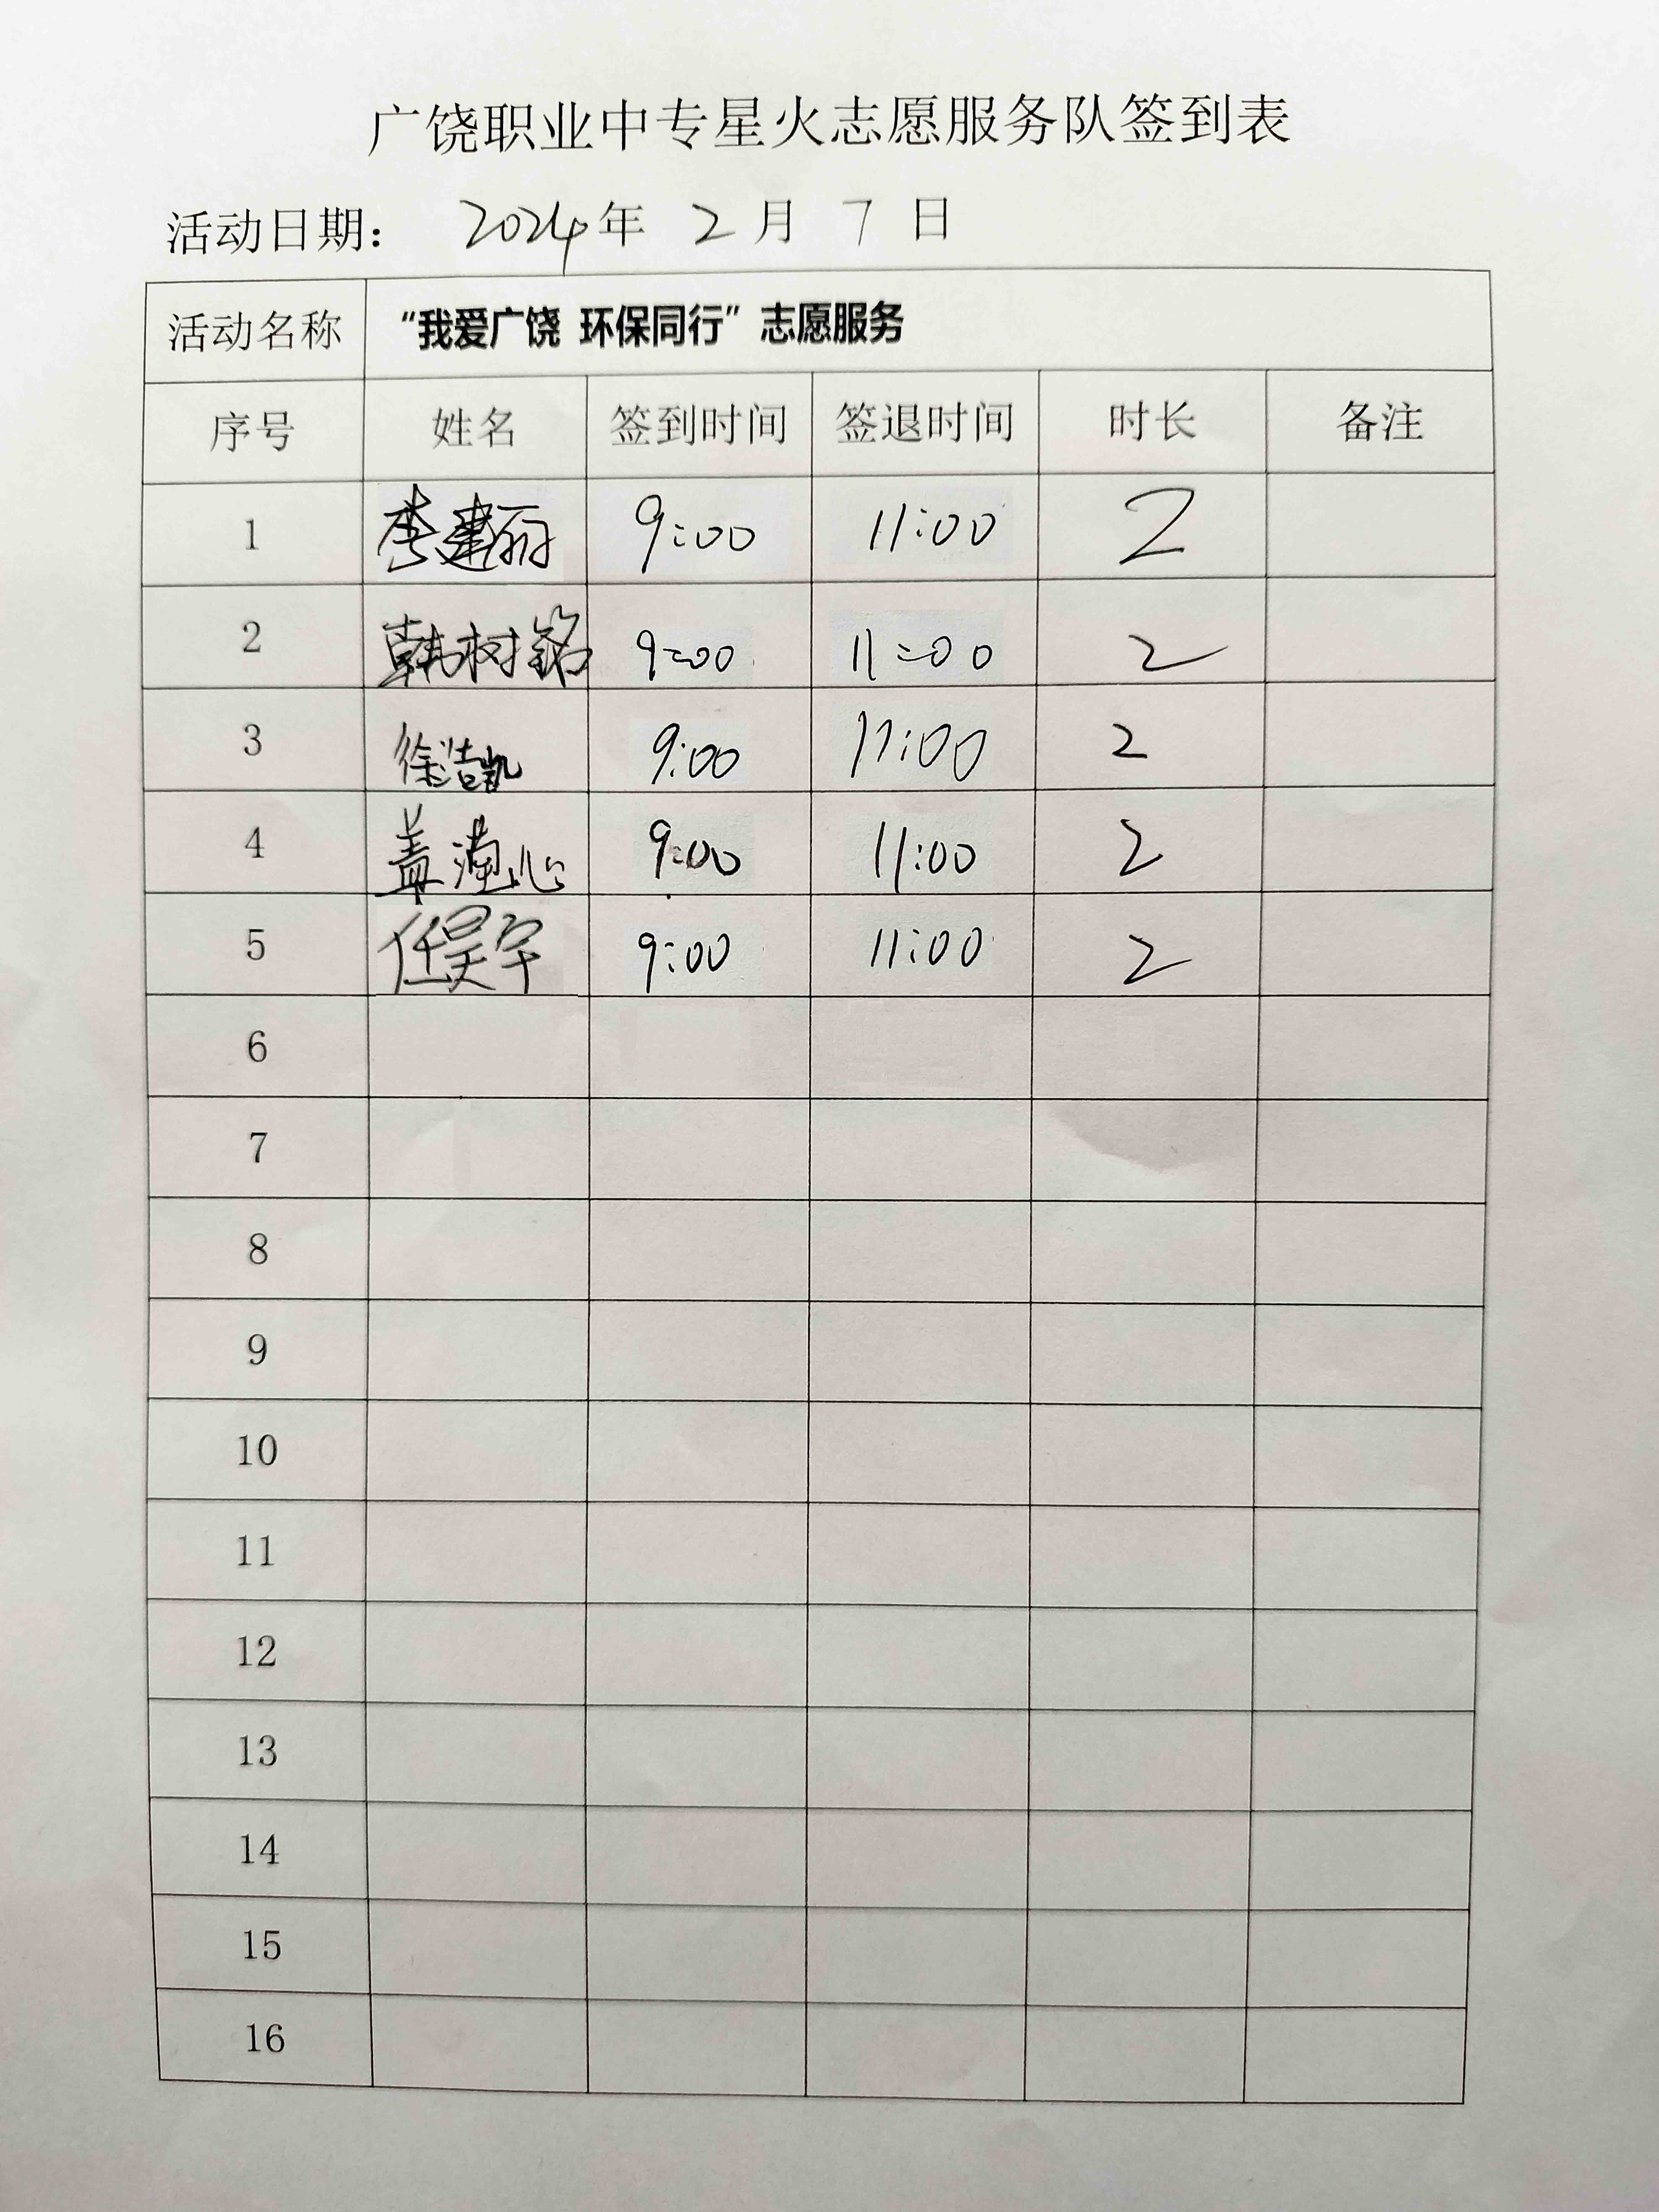 广饶职业中专星火志愿服务队签到表
活动日期： 2024年 2 月 7 日
活动名称 “我爱广饶 环保同行”志愿服务
序号 姓名 签到时间 签退时间 时长 备注
1 李建丽 9:00 11:00 2
2 韩树铭 9:00 11:00 2
3 徐浩凯 9:00 11:00 2
4 盖心 9:00 11:00 2
5 任昊宇 9:00 11:00 2
6
7
8
9
10
11
12
13
14
15
16